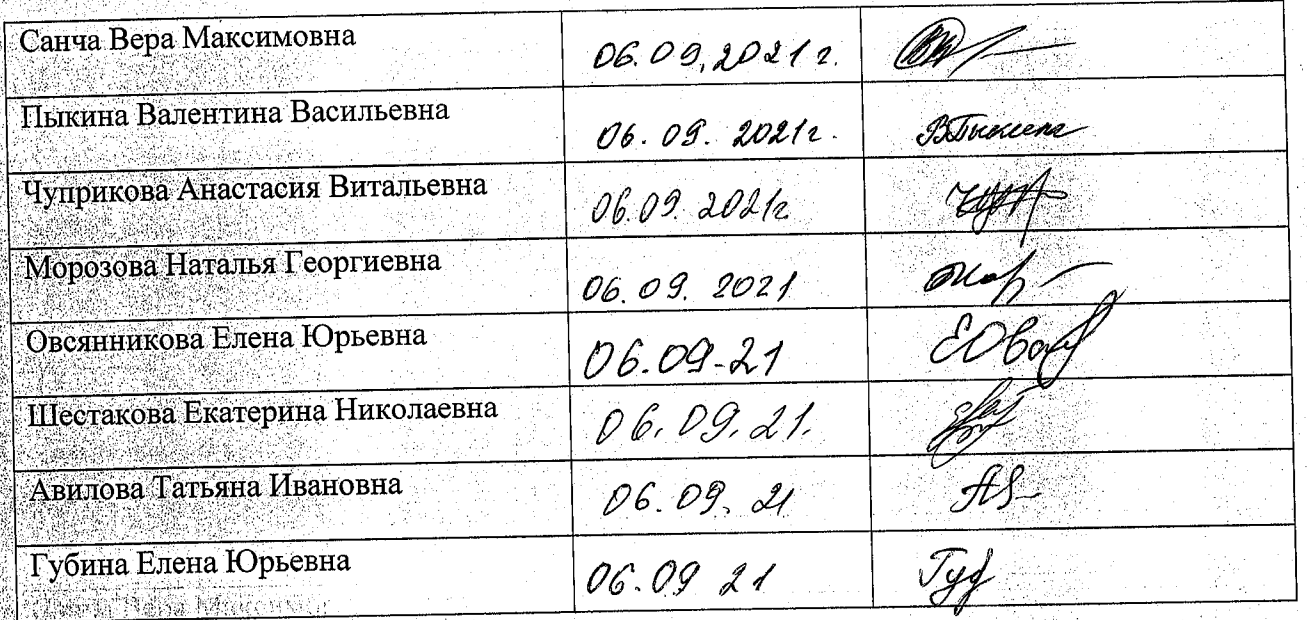 Санча Вера Максимовна 06.09.2021 г.
Пыкина Валентина Васильевна 06.09.2021г. ВПыкина
Чуприкова Анастасия Витальевна 06.09.2021г
Морозова Наталья Георгиевна 06.09.2021
Овсянникова Елена Юрьевна 06.09-21
Шестакова Екатерина Николаевна 06.09.21.
Авилова Татьяна Ивановна 06.09.21
Губина Елена Юрьевна 06.09 21 Губ